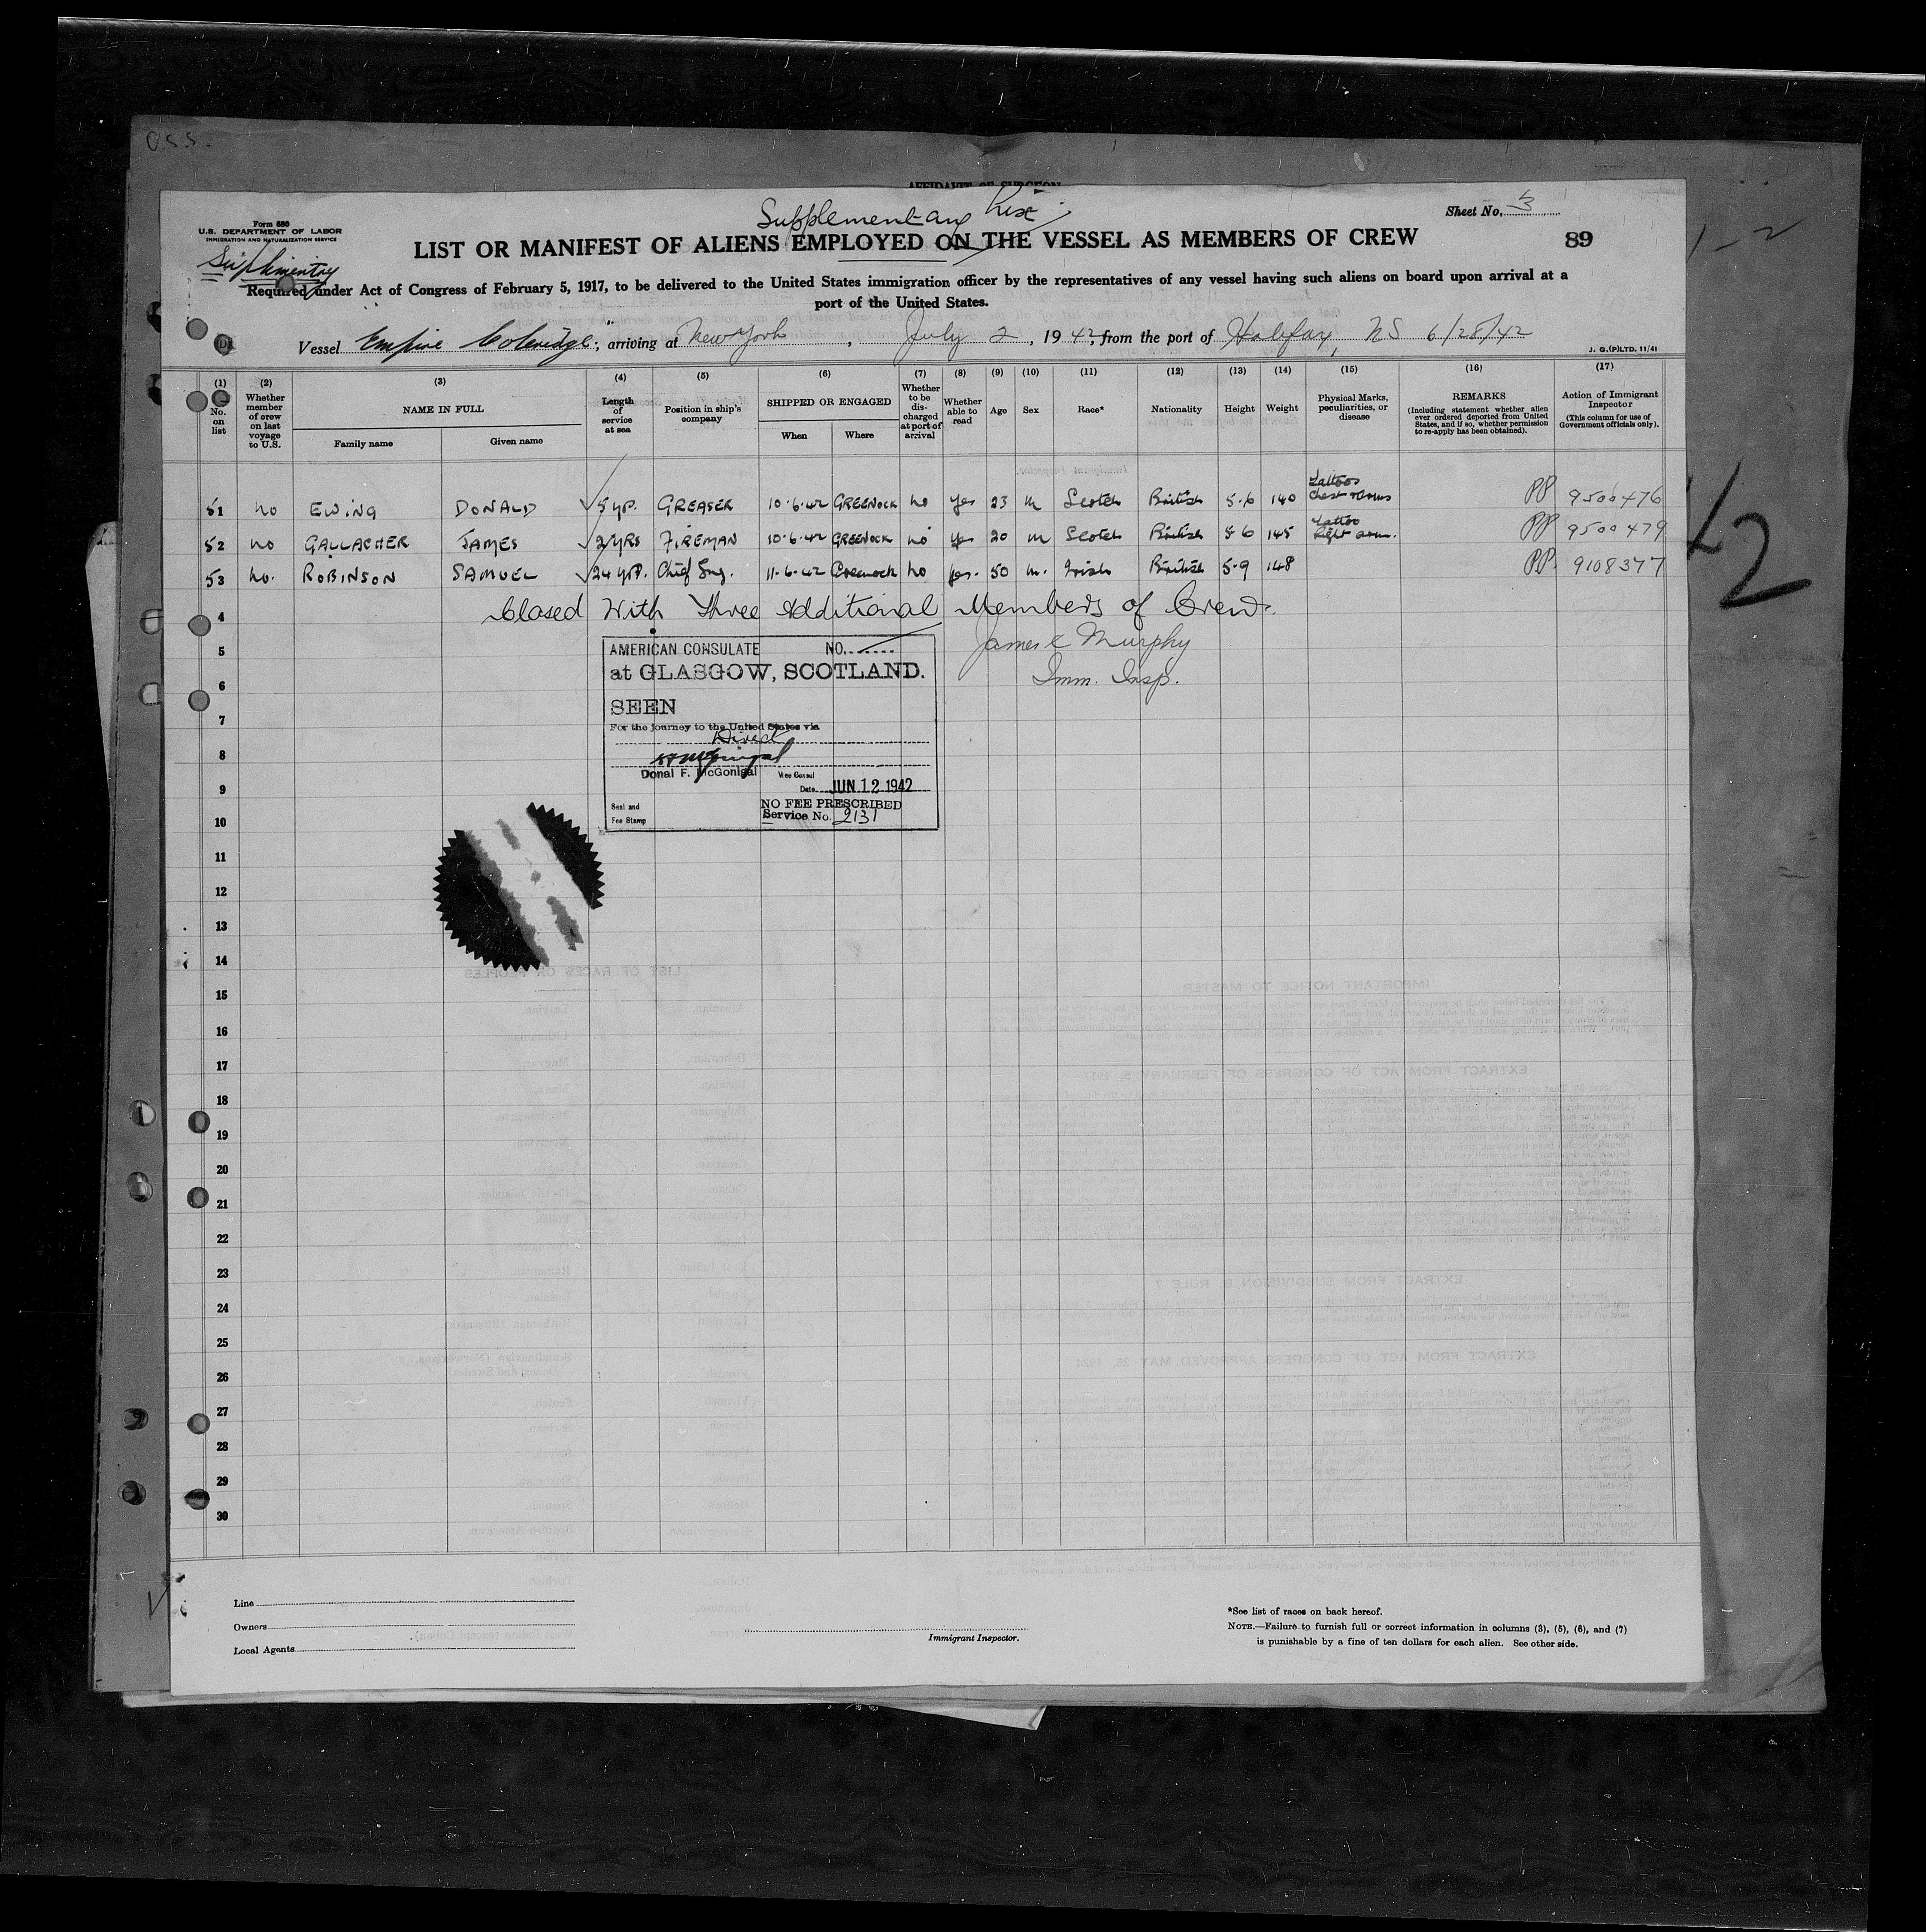 O.S.S.
AFFIDAVIT OF SURGEON
Supplementary List
Sheet No. 3
Form 680
U.S. DEPARTMENT OF LABOR
IMMIGRATION AND NATURALIZATION SERVICE
LIST OR MANIFEST OF ALIENS EMPLOYED ON THE VESSEL AS MEMBERS OF CREW
89
1-2
Suplimentary
Required under Act of Congress of February 5, 1917, to be delivered to the United States immigration officer by the representatives of any vessel having such aliens on board upon arrival at a
port of the United States.
Vessel "Empire Coleridge", arriving at New York, July 2, 1942, from the port of Halifax, NS 6/28/42
J. G. (P) LTD. 11/41
(1) (2) (3) (4) (5) (6) (7) (8) (9) (10) (11) (12) (13) (14) (15) (16) (17)
No. on list
Whether member of crew on last voyage to U.S.
NAME IN FULL
Family name Given name
Length of service at sea
Position in ship's company
SHIPPED OR ENGAGED
When Where
Whether to be discharged at port of arrival
Whether able to read
Age
Sex
Race*
Nationality
Height
Weight
Physical Marks, peculiarities, or disease
REMARKS
(Including statement whether alien ever ordered deported from United States, and if so, whether permission to re-apply has been obtained).
Action of Immigrant Inspector
(This column for use of Government officials only).
51 no EWING DONALD 5 yrs. GREASER 10.6.42 GREENOCK no yes 23 m Scotch British 5.6 140 Tattoos Chest & arms PP 9500476
52 no GALLACHER JAMES 2 YRS FIREMAN 10.6.42 GREENOCK no yes 20 m Scotch British 5 6 145 Tattoo Right arm. PP 9500479
53 no. ROBINSON SAMUEL 24 yrs. Chief Eng. 11.6.42 Greenock no yes. 50 m. Irish British 5.9 148 PP. 9108377
42
4 Closed With Three Additional Members of Crew.
James E Murphy
Imm. Insp.
AMERICAN CONSULATE NO.
at GLASGOW, SCOTLAND.
SEEN
For the journey to the United States via
Direct
Donal F. McGonigal Vice Consul
Date JUN 12 1942
Seal and
Fee Stamp
NO FEE PRESCRIBED
Service No. 2131
5
6
7
8
9
10
11
12
13
14
15
16
17
18
19
20
21
22
23
24
25
26
27
28
29
30
Line
Owners
Local Agents
Immigrant Inspector.
*See list of races on back hereof.
NOTE.—Failure to furnish full or correct information in columns (3), (5), (6), and (7)
is punishable by a fine of ten dollars for each alien. See other side.